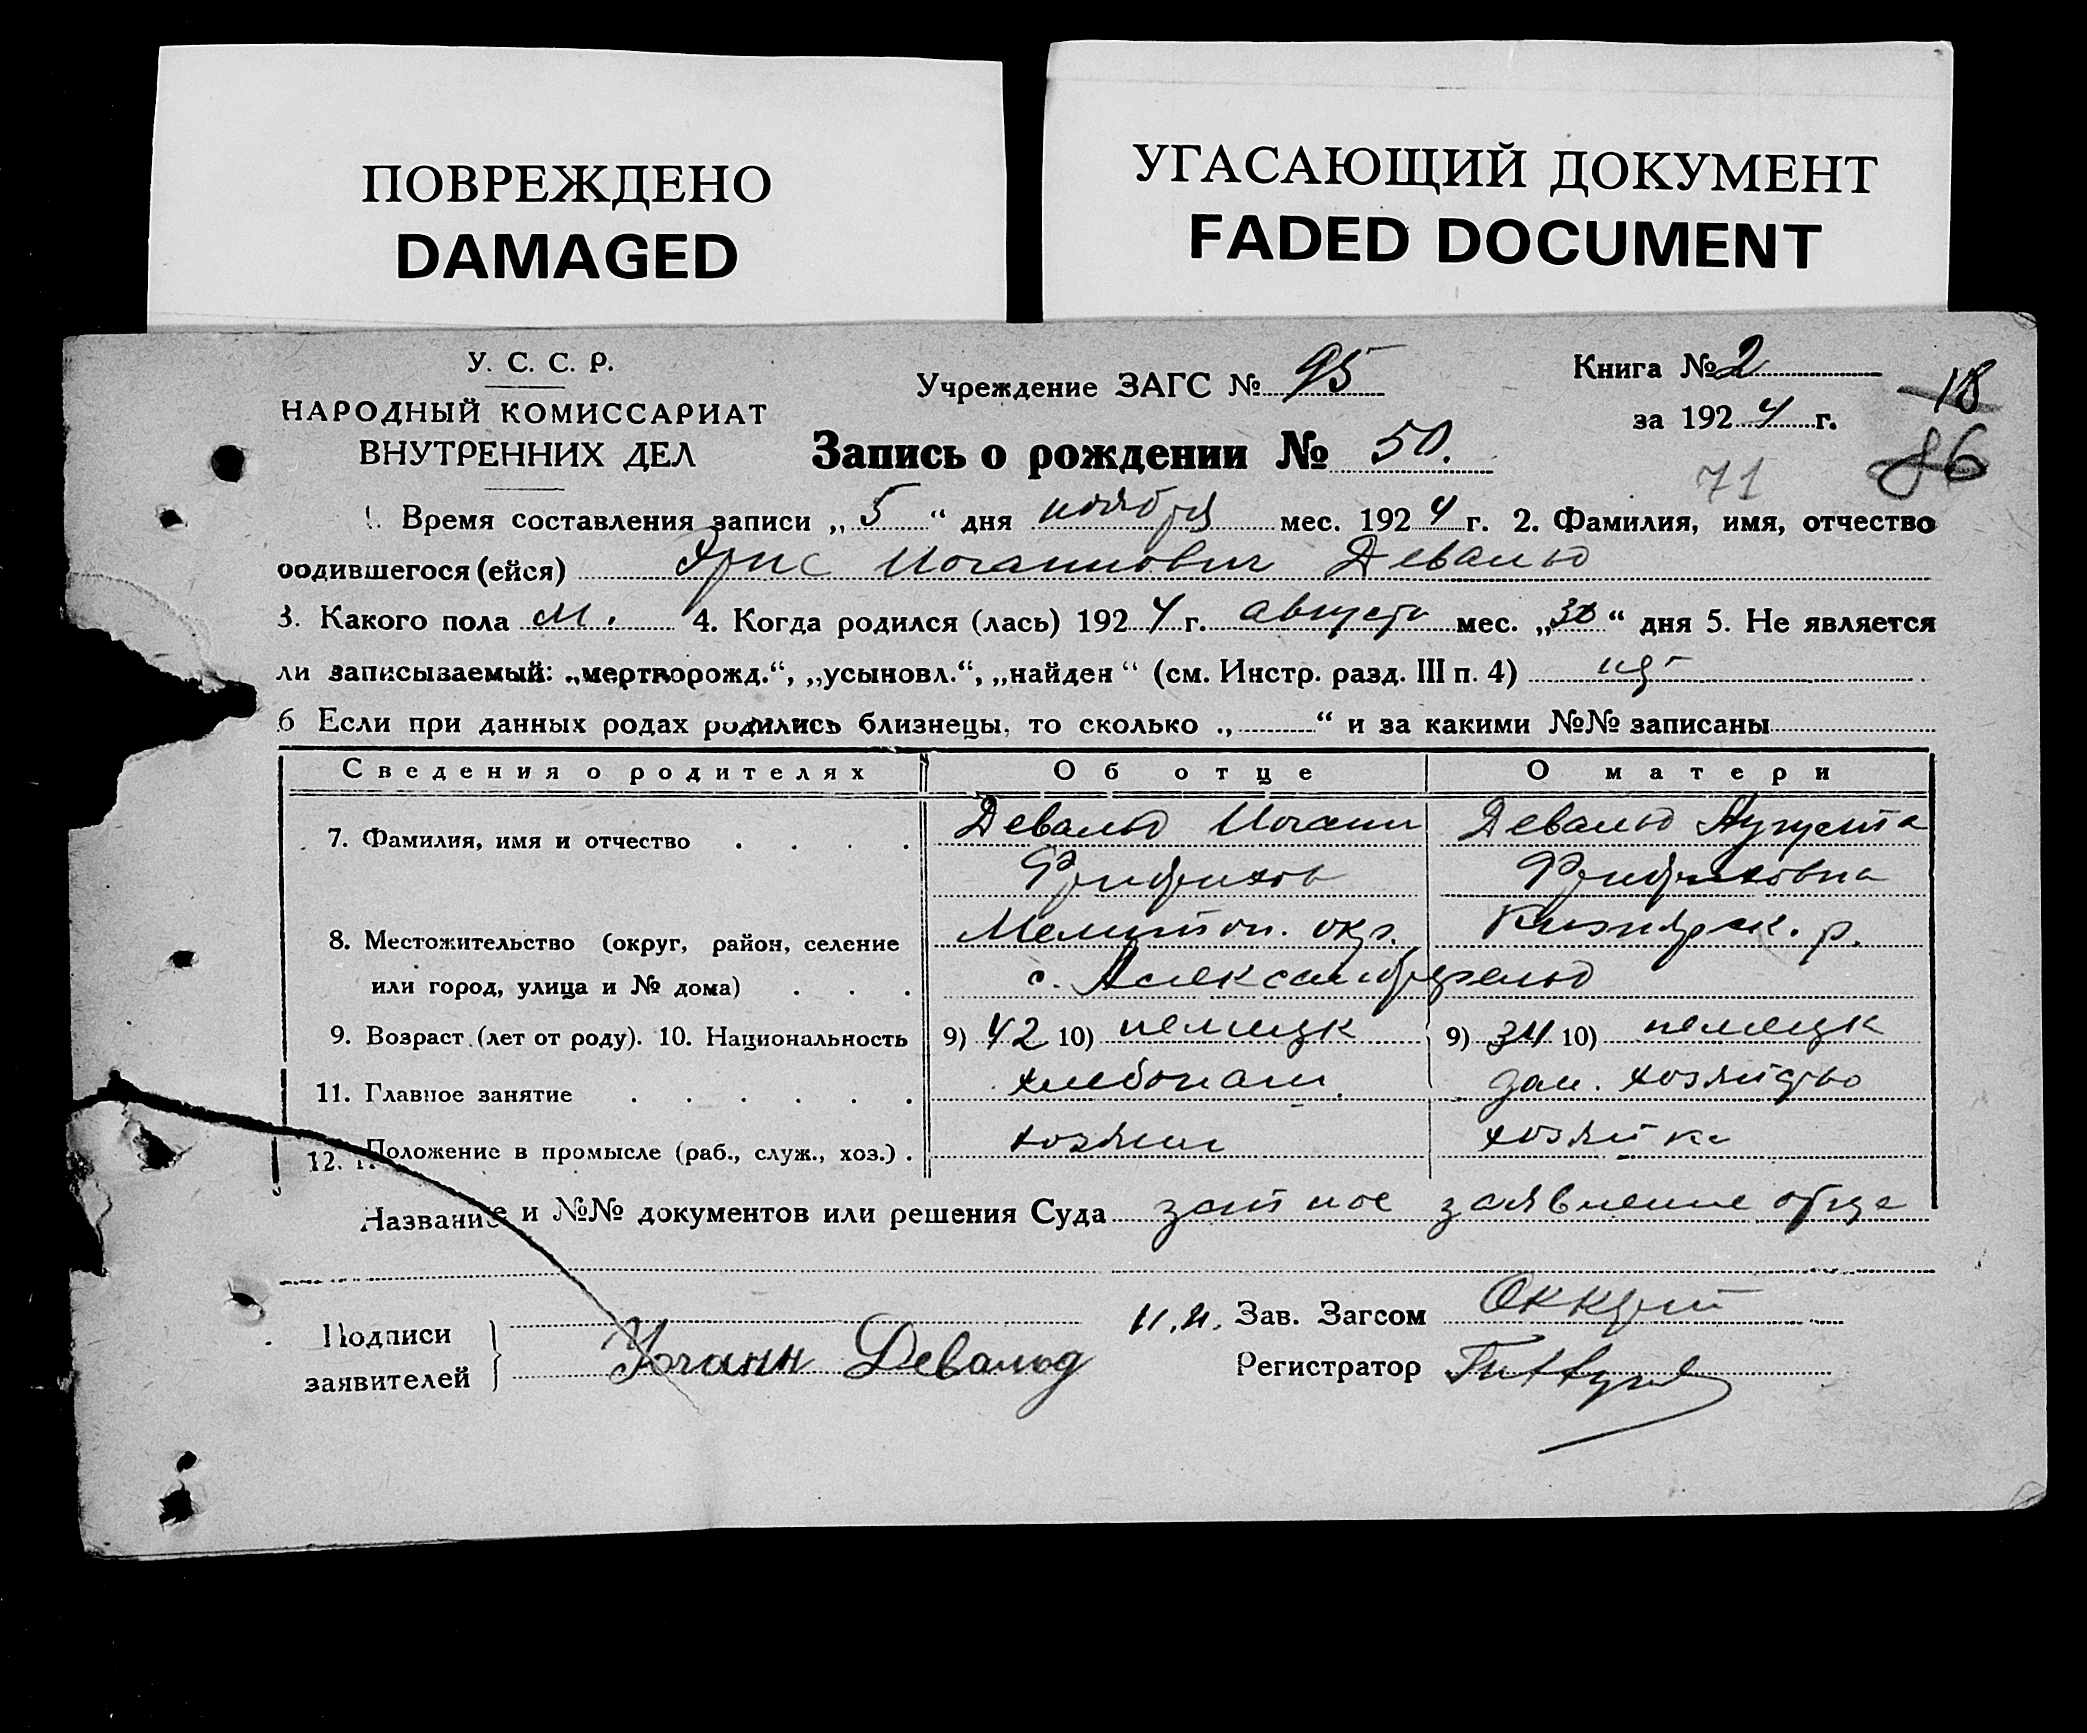 ПОВРЕЖДЕНО
DAMAGED
УГАСАЮЩИЙ ДОКУМЕНТ
FADED DOCUMENT
У. С. С. Р.
НАРОДНЫЙ КОМИССАРИАТ
ВНУТРЕННИХ ДЕЛ
Учреждение ЗАГС № 95
Книга № 2
за 1924 г.
18
86
71
Запись о рождении № 50.
1. Время составления записи „5“ дня ноября мес. 1924 г. 2. Фамилия, имя, отчество
родившегося (ейся) Иоганнович Девальд
3. Какого пола м. 4. Когда родился (лась) 1924 г. августа мес. „30“ дня 5. Не является
ли записываемый: „мертворожд.“, „усыновл.“, „найден“ (см. Инстр. разд. III п. 4) нет
6 Если при данных родах родились близнецы, то сколько „ “ и за какими №№ записаны
Сведения о родителях Об отце О матери
7. Фамилия, имя и отчество Девальд Иоганн Девальд Августа
Фридрихов Фридриховна
8. Местожительство (округ, район, селение Мелитоп. окр. р.
или город, улица и № дома) с. Александрфельд
9. Возраст (лет от роду). 10. Национальность 9) 42 10) немецк 9) 34 10) немецк
11. Главное занятие хлебопаш. дом. хозяйство
12. Положение в промысле (раб., служ., хоз.) хозяин хозяйка
Название и №№ документов или решения Суда заявление отца
Подписи
заявителей Иоганн Девальд
Зав. Загсом
Регистратор